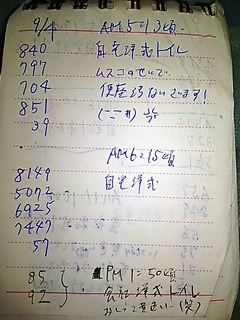 9/4 AM5:13頃.
840 自宅洋式トイレ
797 ムスコのせいで
704 便座冷たいです!
851 (ーー#)
39
AM6:15頃
8149 自宅洋式
5072
6925
7447
57
85 } PM1:50頃
92 会社洋式トイレ
(笑)